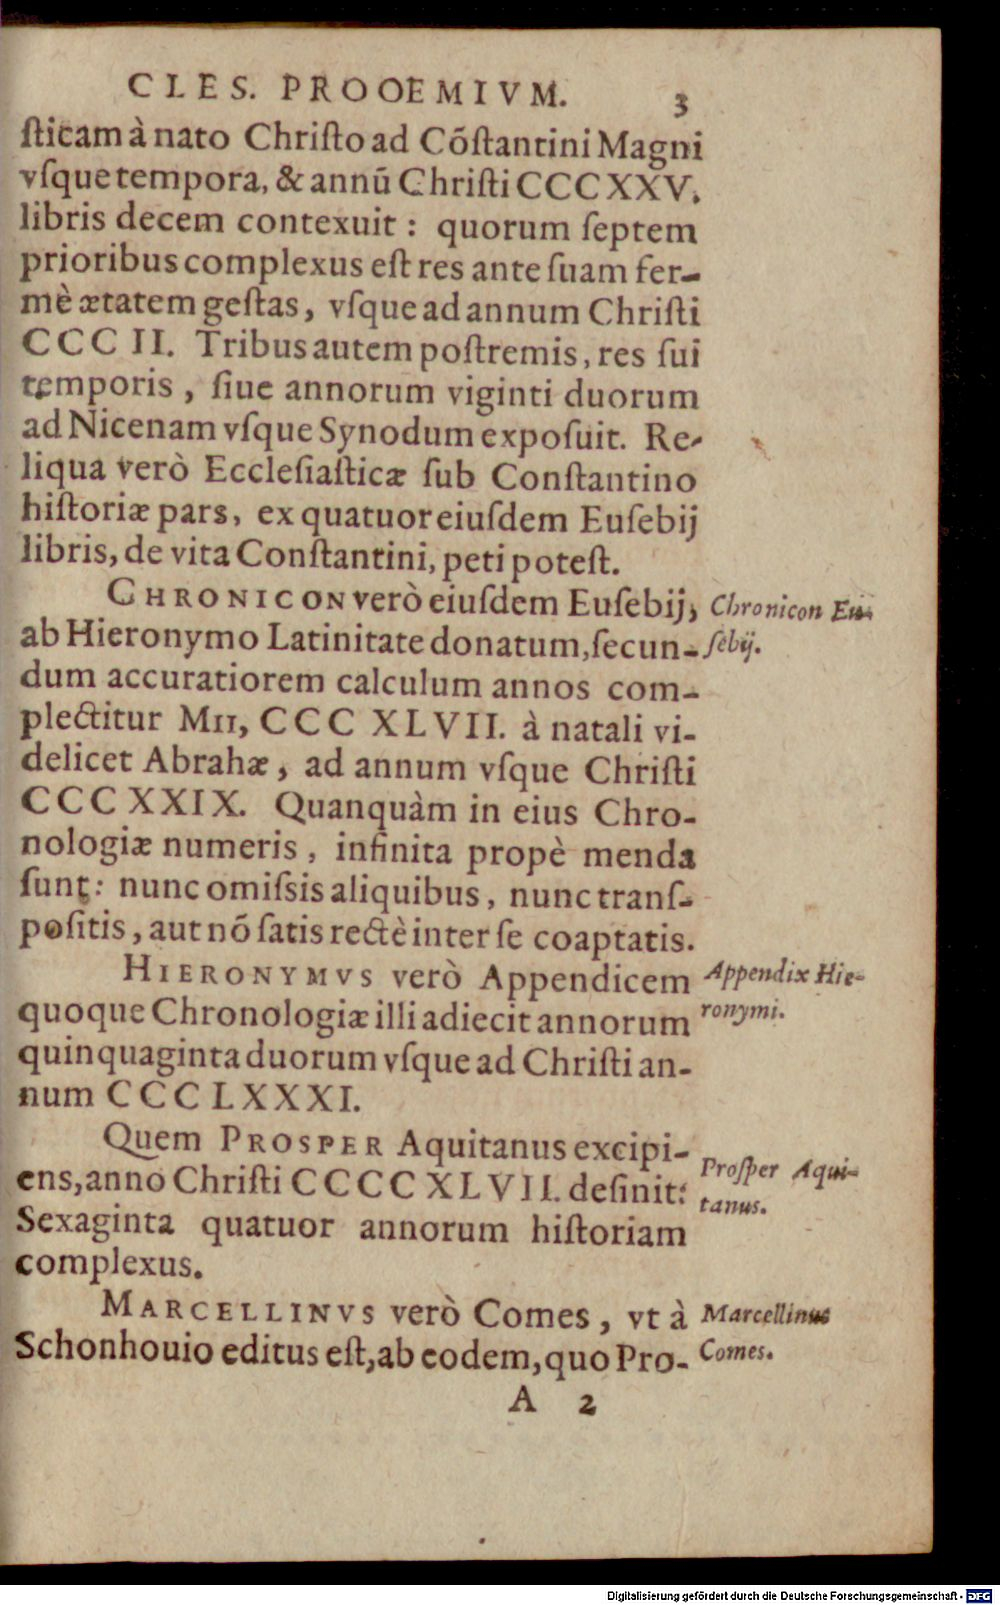 CLES. PROOEMIVM. 3
ſticam à nato Chriſto ad Cōſtantini Magni
vſque tempora, & annū Chriſti CCCXXV.
libris decem contexuit : quorum ſeptem
prioribus complexus eſt res ante ſuam fer-
mè ætatem geſtas, vſque ad annum Chriſti
CCC II. Tribus autem poſtremis, res ſui
temporis, ſiue annorum viginti duorum
ad Nicenam vſque Synodum expoſuit. Re-
liqua verò Eccleſiaſticæ ſub Conſtantino
hiſtoriæ pars, ex quatuor eiuſdem Euſebij
libris, de vita Conſtantini, peti poteſt.
CHRONICON verò eiuſdem Euſebij,
Chronicon Eu-
ſebij.
ab Hieronymo Latinitate donatum, ſecun-
dum accuratiorem calculum annos com-
plectitur MII, CCC XLVII. à natali vi-
delicet Abrahæ, ad annum vſque Chriſti
CCCXXIX. Quanquàm in eius Chro-
nologiæ numeris, infinita propè menda
ſunt: nunc omiſsis aliquibus, nunc tranſ-
poſitis, aut nō ſatis rectè inter ſe coaptatis.
HIERONYMVS verò Appendicem
Appendix Hie-
ronymi.
quoque Chronologiæ illi adiecit annorum
quinquaginta duorum vſque ad Chriſti an-
num CCCLXXXI.
Quem PROSPER Aquitanus excipi-
Proſper Aqui-
tanus.
ens, anno Chriſti CCCCXLVII. deſinit:
Sexaginta quatuor annorum hiſtoriam
complexus.
MARCELLINVS verò Comes, vt à
Marcellinus
Comes.
Schonhouio editus eſt, ab eodem, quo Pro-
A 2
Digitalisierung gefördert durch die Deutsche Forschungsgemeinschaft - DFG